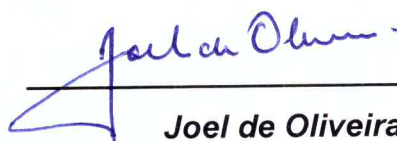 Joel de Oliveira
Joel de Oliveira